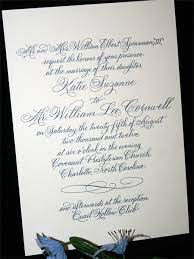 Mr. and Mrs. William Elbert Spearman, III
request the honour of your presence
at the marriage of their daughter
Katie Suzanne
to
Mr. William Lee Cornwell
on Saturday, the twenty fifth of August
two thousand and twelve
at six o'clock in the evening
Covenant Presbyterian Church
Charlotte, North Carolina
and afterwards at the reception
Quail Hollow Club